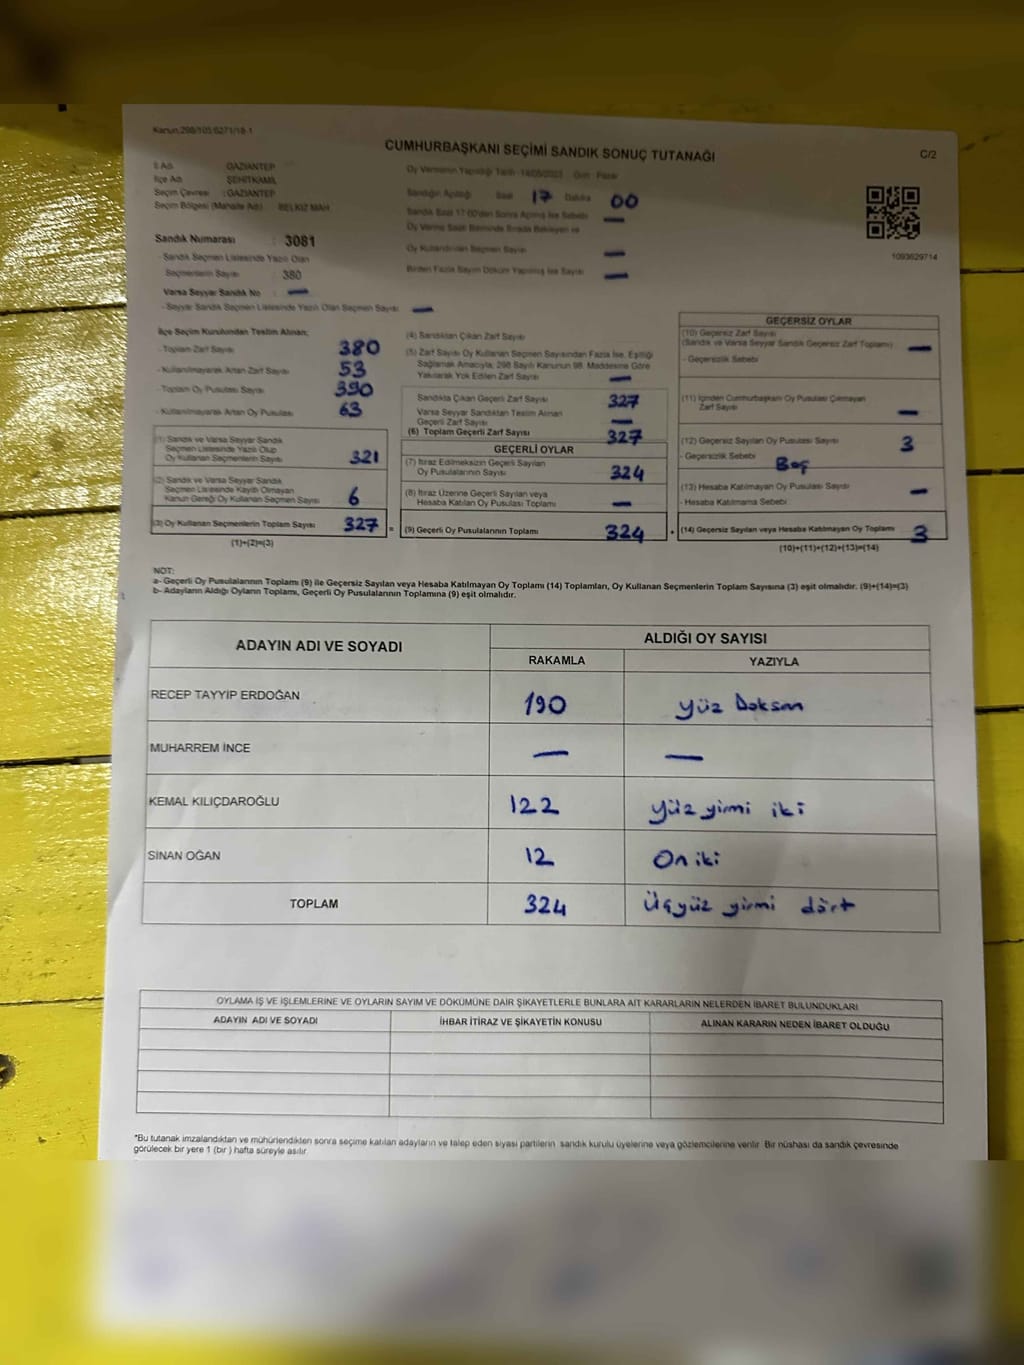 Kanun:298/105;6271/18-1
CUMHURBAŞKANI SEÇİMİ SANDIK SONUÇ TUTANAĞI
C/2
İl Adı : GAZİANTEP
İlçe Adı : ŞEHİTKAMİL
Seçim Çevresi : GAZİANTEP
Seçim Bölgesi (Mahalle Adı) : BELKIZ MAH.
Oy Vermenin Yapıldığı Tarih : 14/05/2023 Gün : Pazar
Sandığın Açıldığı Saat 17 Dakika 00
Sandık Saat 17:00'den Sonra Açılmış İse Sebebi —
Oy Verme Saati Bitiminde Sırada Bekleyen ve
Oy Kullandırılan Seçmen Sayısı —
Birden Fazla Sayım Döküm Yapılmış İse Sayısı —
1093629714
Sandık Numarası : 3081
- Sandık Seçmen Listesinde Yazılı Olan
Seçmenlerin Sayısı : 380
Varsa Seyyar Sandık No : —
- Seyyar Sandık Seçmen Listesinde Yazılı Olan Seçmen Sayısı : —
İlçe Seçim Kurulundan Teslim Alınan;
- Toplam Zarf Sayısı 380
- Kullanılmayarak Artan Zarf Sayısı 53
- Toplam Oy Pusulası Sayısı 390
- Kullanılmayarak Artan Oy Pusulası 63
(1) Sandık ve Varsa Seyyar Sandık
Seçmen Listesinde Yazılı Olup
Oy Kullanan Seçmenlerin Sayısı 321
(2) Sandık ve Varsa Seyyar Sandık
Seçmen Listesinde Kayıtlı Olmayan
Kanun Gereği Oy Kullanan Seçmen Sayısı 6
(3) Oy Kullanan Seçmenlerin Toplam Sayısı 327 =
(1)+(2)=(3)
(4) Sandıktan Çıkan Zarf Sayısı
(5) Zarf Sayısı Oy Kullanan Seçmen Sayısından Fazla İse, Eşitliği
Sağlamak Amacıyla, 298 Sayılı Kanunun 98. Maddesine Göre
Yakılarak Yok Edilen Zarf Sayısı —
Sandıkta Çıkan Geçerli Zarf Sayısı 327
Varsa Seyyar Sandıktan Teslim Alınan
Geçerli Zarf Sayısı —
(6) Toplam Geçerli Zarf Sayısı 327
GEÇERLİ OYLAR
(7) İtiraz Edilmeksizin Geçerli Sayılan
Oy Pusulalarının Sayısı 324
(8) İtiraz Üzerine Geçerli Sayılan veya
Hesaba Katılan Oy Pusulası Toplamı —
(9) Geçerli Oy Pusulalarının Toplamı 324 +
GEÇERSİZ OYLAR
(10) Geçersiz Zarf Sayısı
(Sandık ve Varsa Seyyar Sandık Geçersiz Zarf Toplamı) —
- Geçersizlik Sebebi
(11) İçinden Cumhurbaşkanı Oy Pusulası Çıkmayan
Zarf Sayısı —
(12) Geçersiz Sayılan Oy Pusulası Sayısı 3
- Geçersizlik Sebebi Boş
(13) Hesaba Katılmayan Oy Pusulası Sayısı —
- Hesaba Katılmama Sebebi
(14) Geçersiz Sayılan veya Hesaba Katılmayan Oy Toplamı 3
(10)+(11)+(12)+(13)=(14)
NOT:
a- Geçerli Oy Pusulalarının Toplamı (9) ile Geçersiz Sayılan veya Hesaba Katılmayan Oy Toplamı (14) Toplamları, Oy Kullanan Seçmenlerin Toplam Sayısına (3) eşit olmalıdır. (9)+(14)=(3)
b- Adayların Aldığı Oyların Toplamı, Geçerli Oy Pusulalarının Toplamına (9) eşit olmalıdır.
ADAYIN ADI VE SOYADI
ALDIĞI OY SAYISI
RAKAMLA YAZIYLA
RECEP TAYYİP ERDOĞAN 190 Yüz Doksan
MUHARREM İNCE — —
KEMAL KILIÇDAROĞLU 122 Yüz yirmi iki
SİNAN OĞAN 12 On iki
TOPLAM 324 Üçyüz yirmi dört
OYLAMA İŞ VE İŞLEMLERİNE VE OYLARIN SAYIM VE DÖKÜMÜNE DAİR ŞİKAYETLERLE BUNLARA AİT KARARLARIN NELERDEN İBARET BULUNDUKLARI
ADAYIN ADI VE SOYADI İHBAR İTİRAZ VE ŞİKAYETİN KONUSU ALINAN KARARIN NEDEN İBARET OLDUĞU
*Bu tutanak imzalandıktan ve mühürlendikten sonra seçime katılan adayların ve talep eden siyasi partilerin sandık kurulu üyelerine veya gözlemcilerine verilir. Bir nüshası da sandık çevresinde
görülecek bir yere 1 (bir ) hafta süreyle asılır.